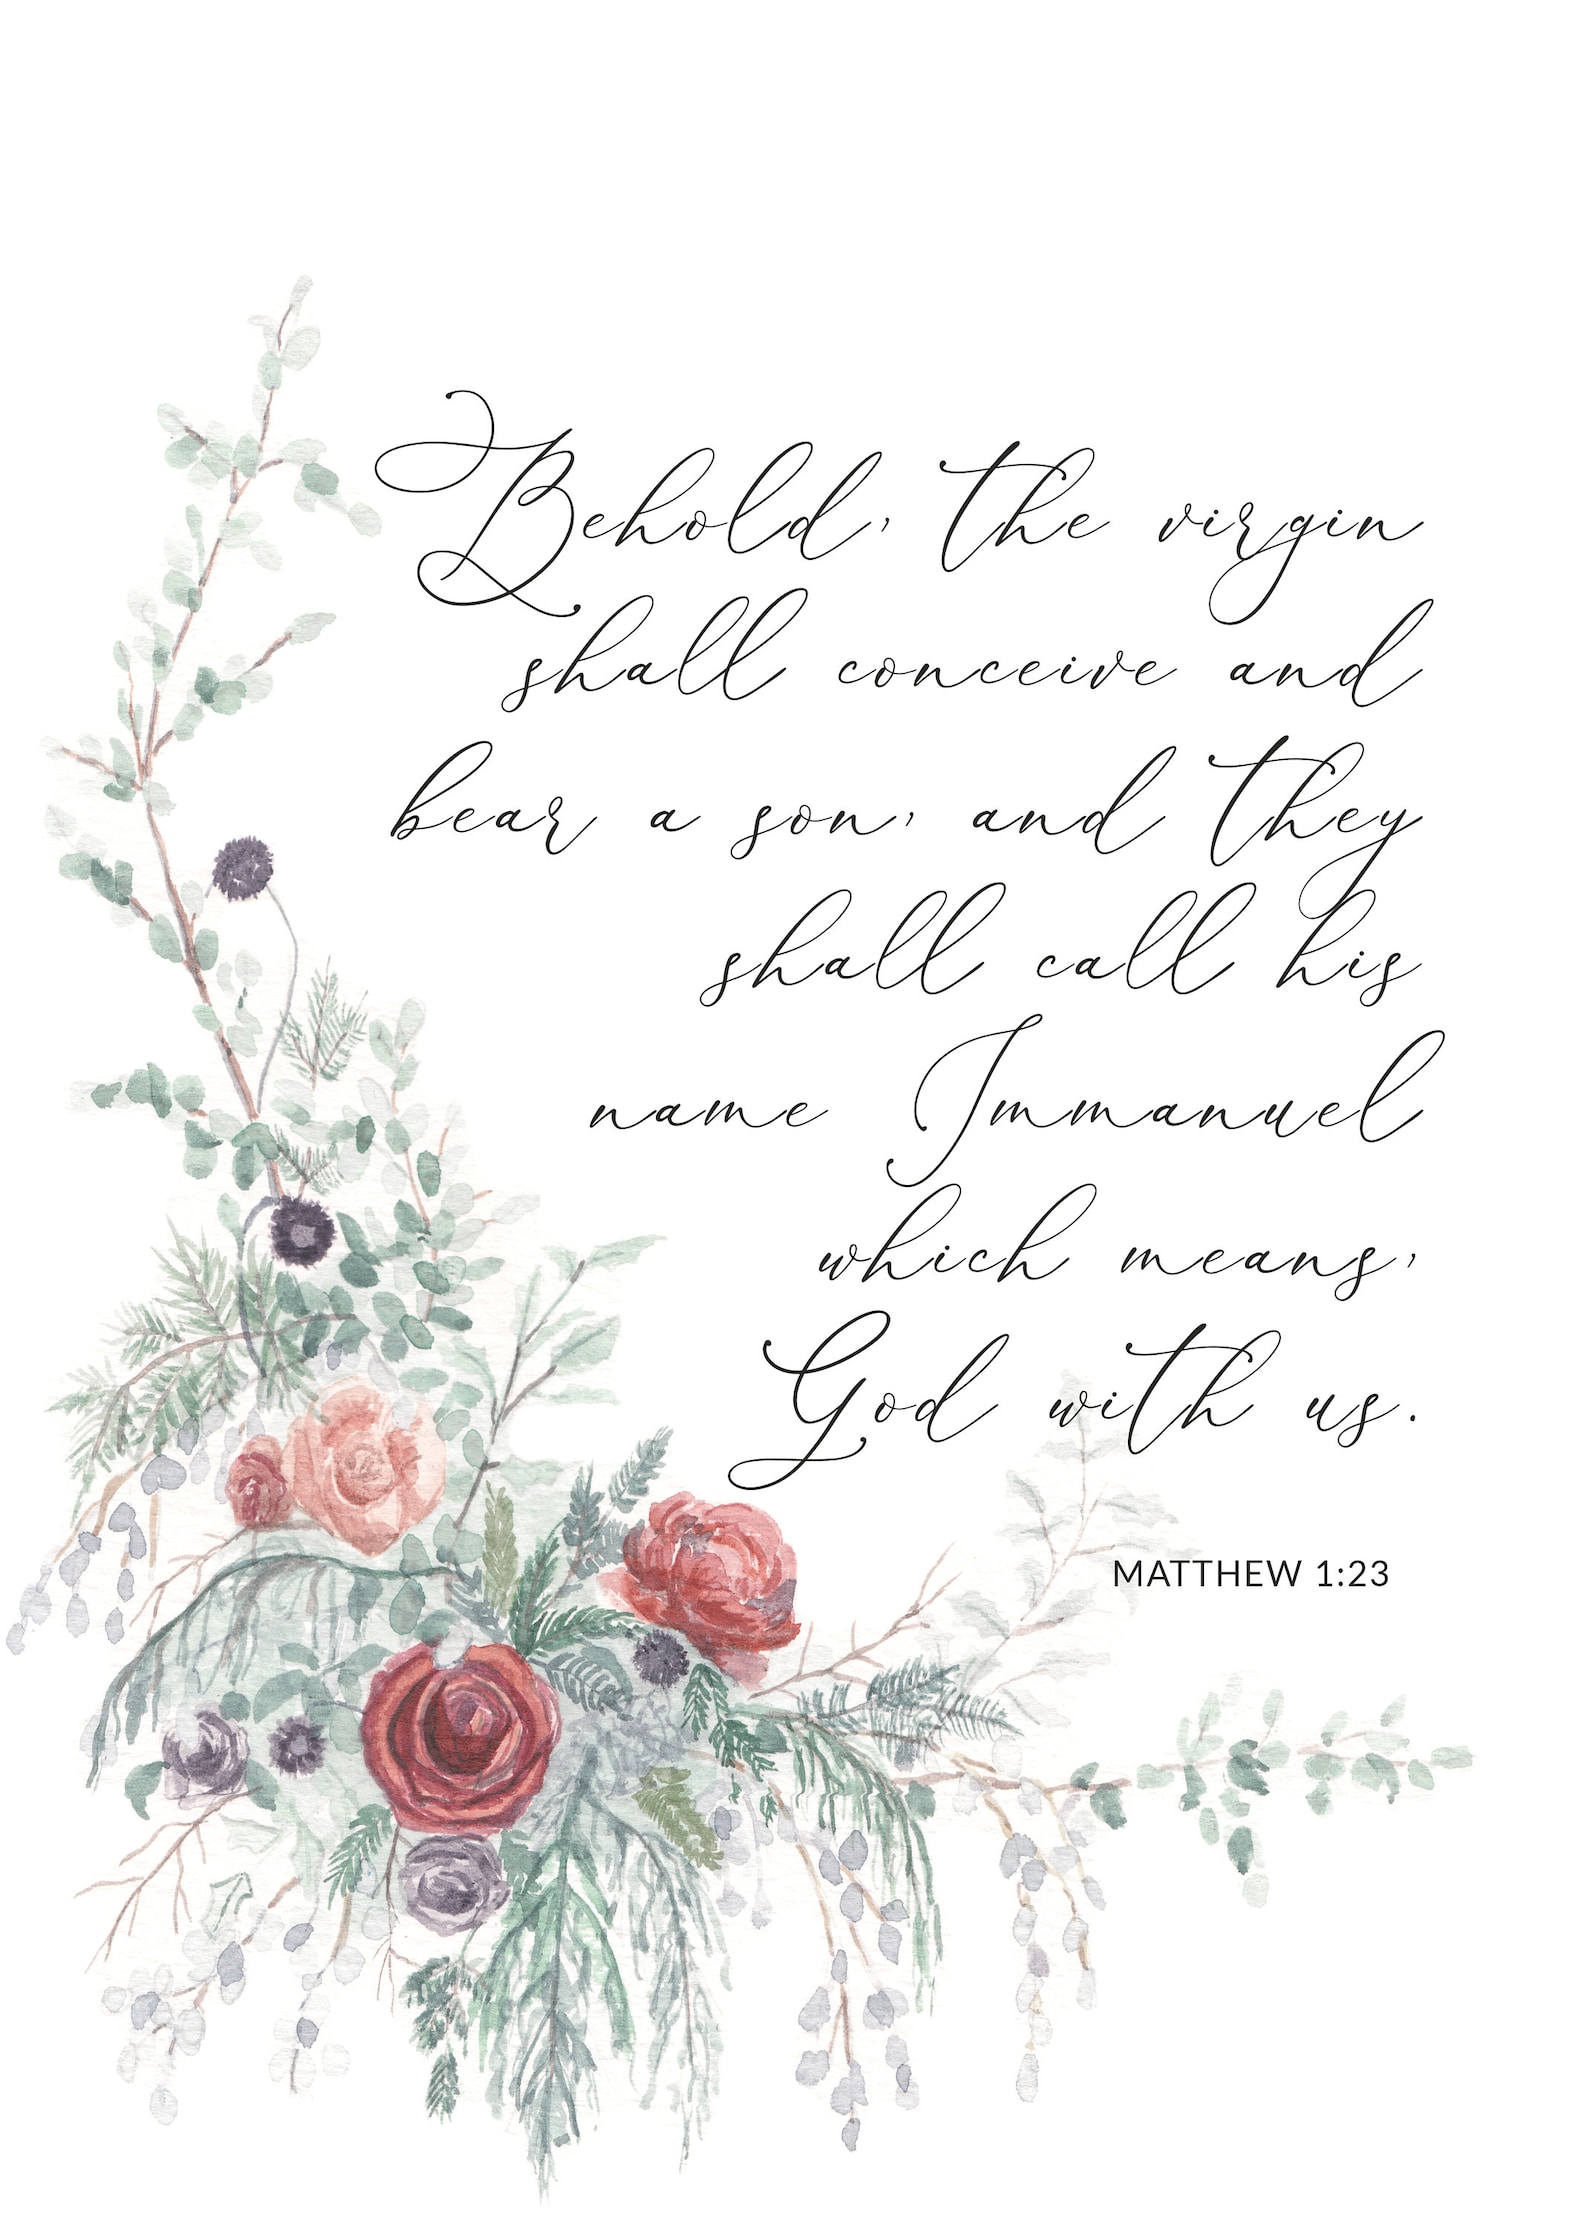 Behold, the virgin
shall conceive and
bear a son, and they
shall call his
name Immanuel
which means,
God with us.
MATTHEW 1:23